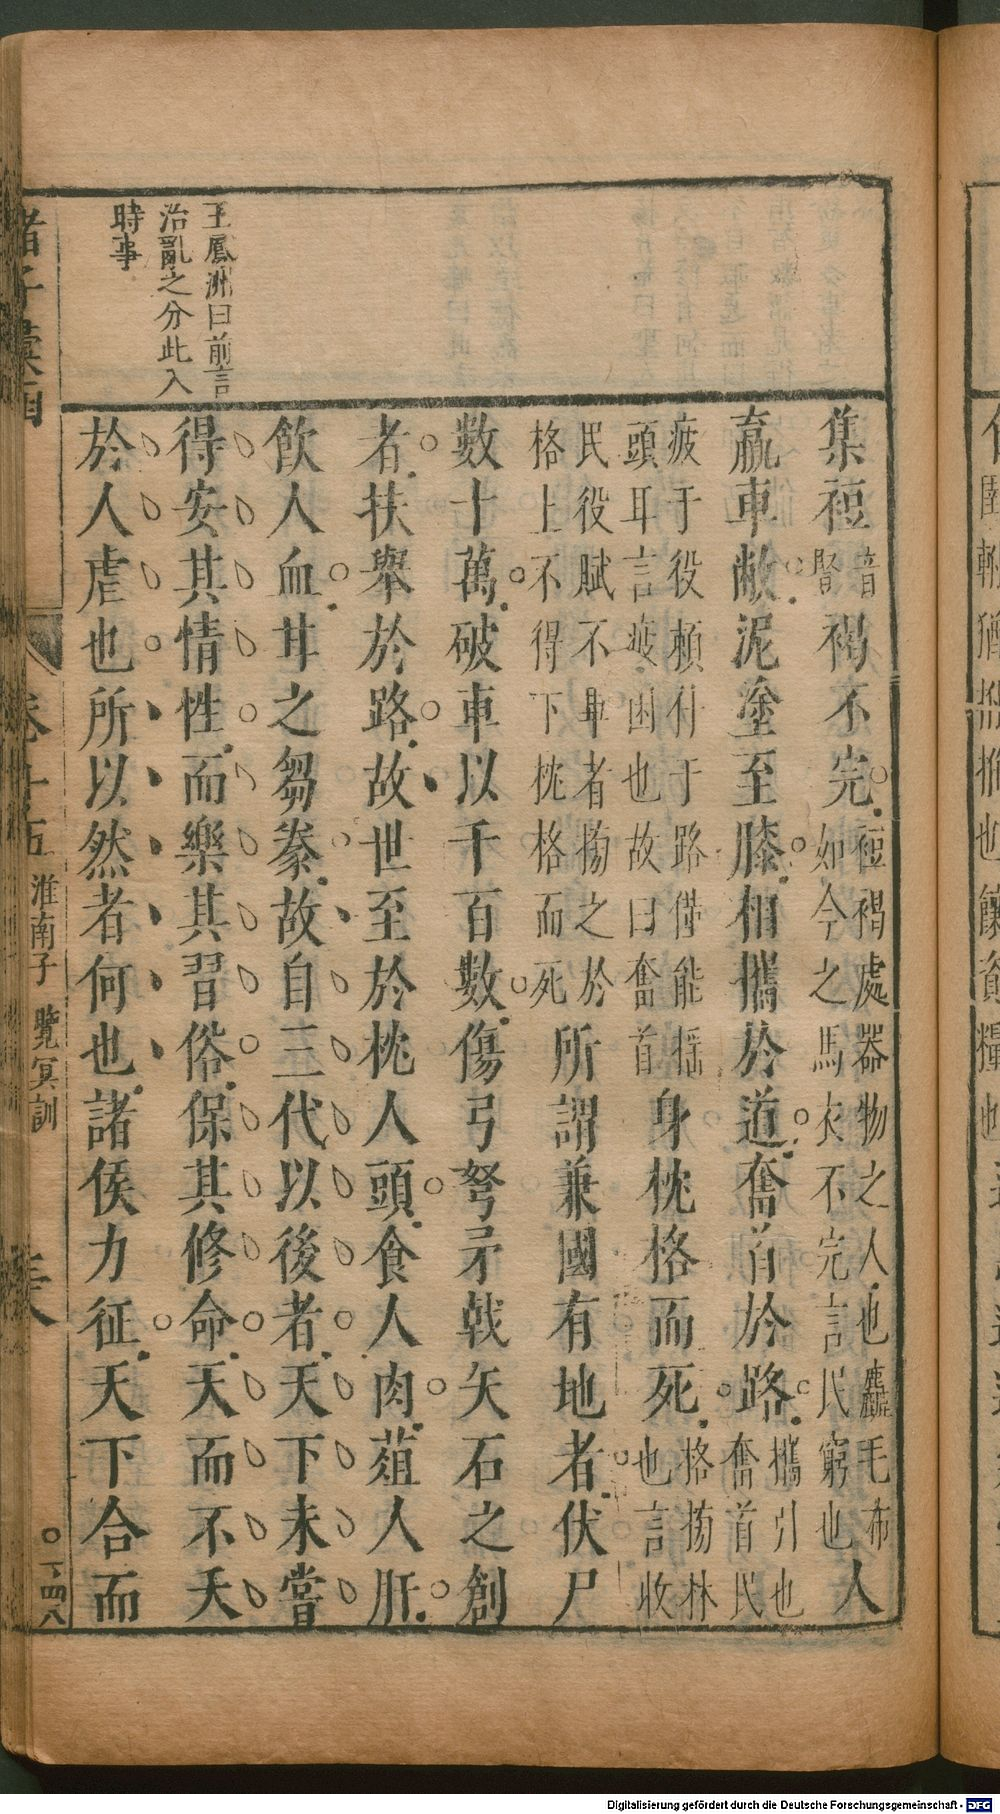 王鳳洲曰前言
治亂之分此入
時事
集裋音豎褐不完裋褐處器物之人也麤毛布如今之馬衣不完言民窮也人
羸車敝泥塗至膝相攜於道奮首於路攜引也奮首民
疲于役頼什于路僅能揺頭耳言疲困也故曰奮首身枕格而死格搒牀也言收
民役賦不畢者搒之於格上不得下枕格而死所謂兼國有地者伏尸
數十萬破車以千百數傷弓弩矛戟矢石之創
者扶舉於路故世至於枕人頭食人肉葅人肝
飲人血甘之芻豢故自三代以後者天下未嘗
得安其情性而樂其習俗保其修命天而不夭
於人虐也所以然者何也諸侯力征天下合而
諸子彙函
卷十五 淮南子 覽冥訓
Digitalisierung gefördert durch die Deutsche Forschungsgemeinschaft - DFG